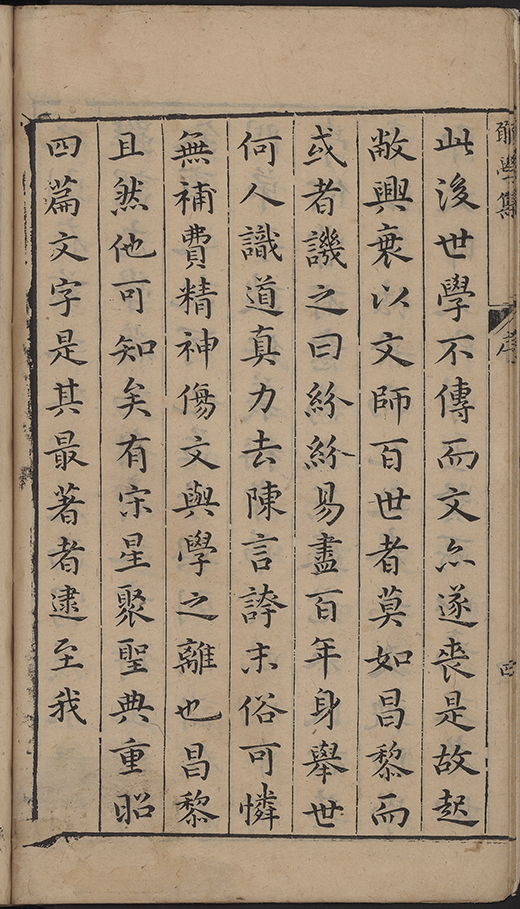 此後世學不傳而文亦遂喪是故起
敝興衰以文師百世者莫如昌黎而
或者譏之曰紛紛易盡百年身舉世
何人識道真力去陳言誇末俗可憐
無補費精神傷文與學之離也昌黎
且然他可知矣有宋星聚聖典重昭
四篇文字是其最著者逮至我